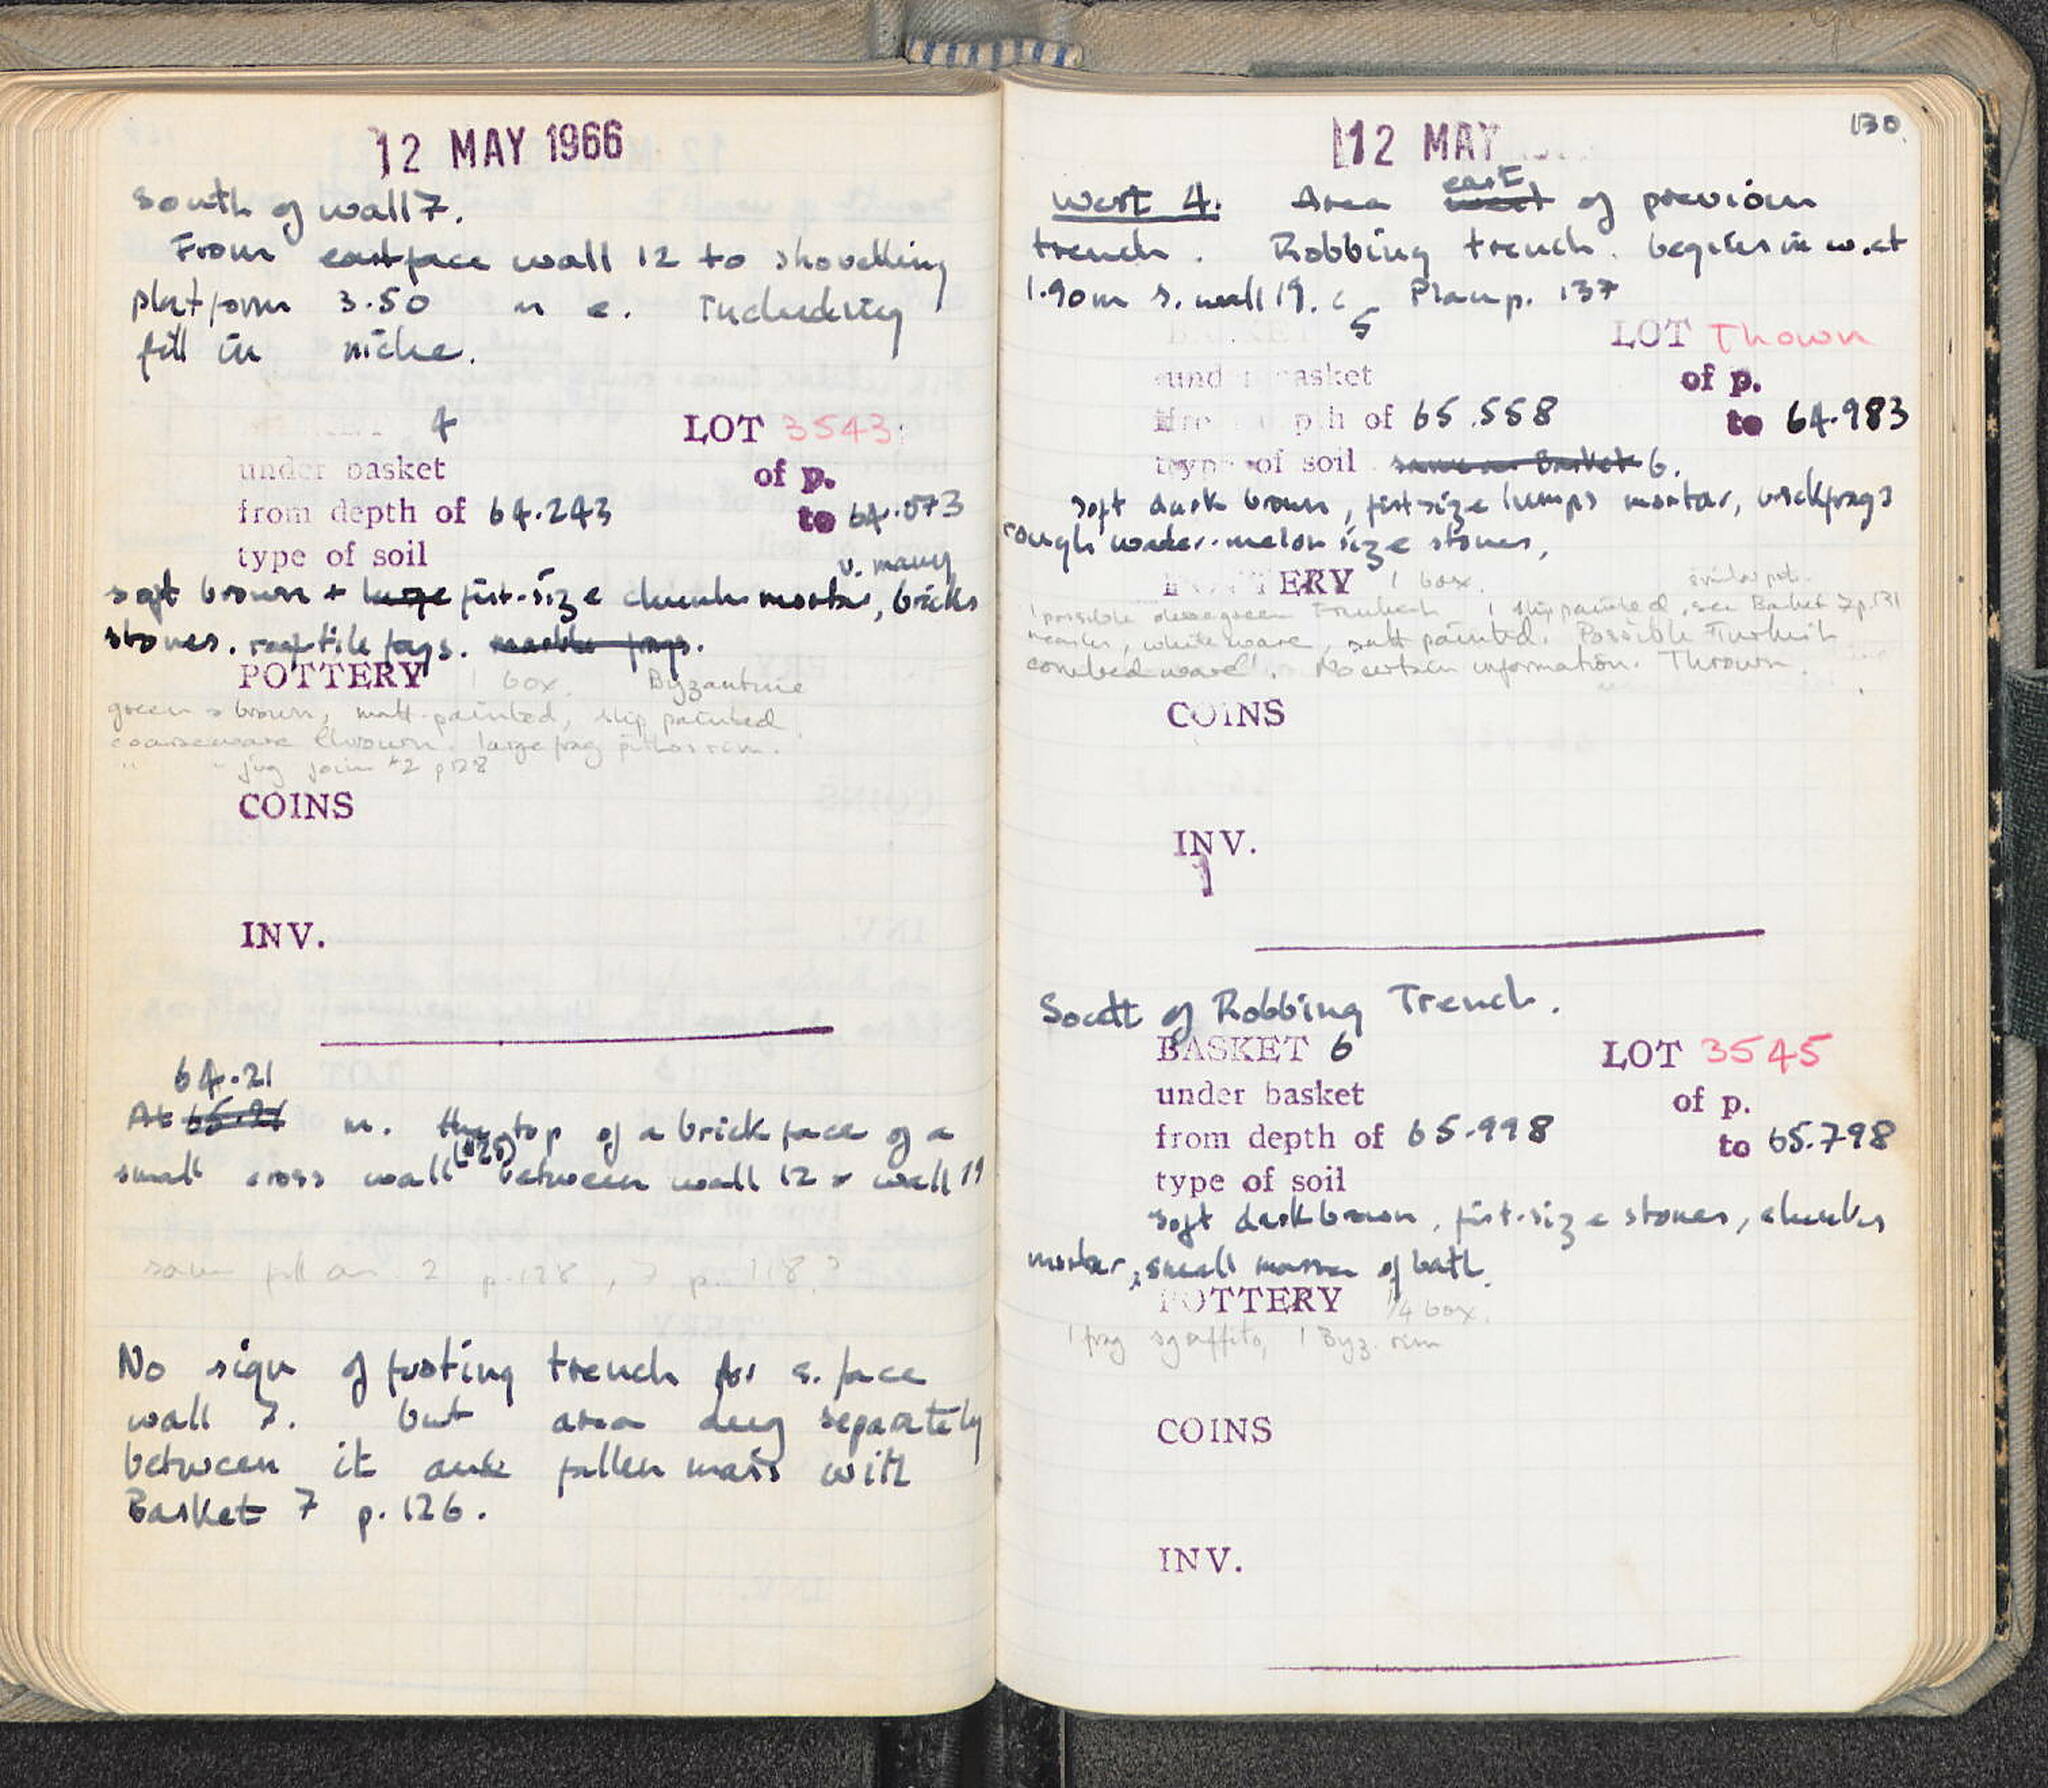 12 MAY 1966
South of wall 7.
From east face wall 12 to shovelling
platform 3.50 m e. Including
fill in niche.
4 LOT 3543
under basket of p.
from depth of 64.243 to 64.073
type of soil v. many
soft brown + large fist-size chunks mortar, bricks
stones. rooftile frags. marble frags.
POTTERY 1 box. Byzantine
green & brown, matt-painted, slip painted,
coarseware thrown. large frag pithos rim.
" " jug join #2 p 128
COINS
INV.
64.21
At 65.21 m. the top of a brick face of a
small cross wall (#25) between wall 12 & wall 19
same fill as 2 p. 128, 7 p. 118?
No sign of footing trench for s. face
wall 7. but area dug separately
between it and fallen mass with
Basket 7 p. 126.
130
12 MAY
West 4. Area west east of previous
trench. Robbing trench. begins in w. at
1.90m s. wall 19. Plan p. 137
BASKET 5 LOT Thown
under basket of p.
from depth of 65.558 to 64.983
type of soil same as Basket 6.
soft dark brown, fist size lumps mortar, brickfrags
rough water-melon size stones,
POTTERY 1 box. similar pot.
1 possible olive green 1 slip painted, see Basket 7 p. 131
measles, white ware, matt painted. Possible Turkish
combed ware. No certain information. Thrown.
COINS
INV.
South of Robbing Trench.
BASKET 6 LOT 3545
under basket of p.
from depth of 65.998 to 65.798
type of soil
soft dark brown, fist-size stones, chunks
mortar, small masses of both.
POTTERY 1/4 box.
1 frag sgraffito, 1 Byz. rim
COINS
INV.